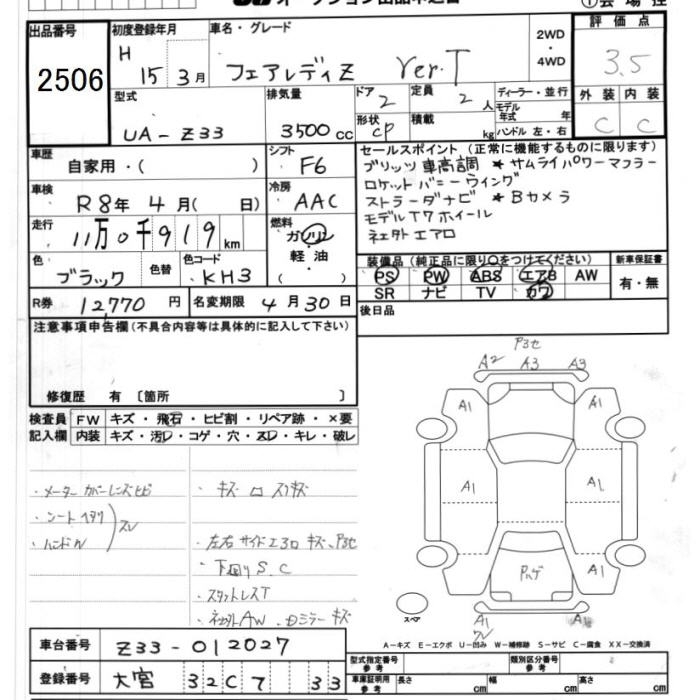 出品番号 2506
初度登録年月 H 15年3月
車名・グレード フェアレディZ Ver.T
2WD・4WD
評価点 3.5
型式 UA-Z33
排気量 3500cc
ドア 2
形状 CP
定員 2人
積載 kg
ディーラー・並行
モデル年式 年
ハンドル 左・右
外装 C
内装 C
車歴 自家用・( )
シフト F6
車検 R8年4月( 日)
冷房 AAC
走行 11万0千919km
燃料 ガソリン・軽油・( )
色 ブラック
色替
色コード KH3
R券 12,770円
名変期限 4月30日
セールスポイント (正常に機能するものに限ります)
ブリッツ車高調 *サムライパワーマフラー
ロケットバニーウィング
ストラーダナビ *Bカメラ
モデルT7ホイール
ネェタトエアロ
装備品(純正品に限り○をつけてください)
PS PW ABS エアB AW
SR ナビ TV カワ
新車保証書 有・無
後日品
注意事項申告欄(不具合内容等は具体的に記入して下さい)
修復歴 有 〔箇所 〕
検査員記入欄
FW キズ・飛石・ヒビ割・リペア跡・×要
内装 キズ・汚レ・コゲ・穴・スレ・キレ・破レ
・メーターカバーレンズヒビ
・シートヘタリ
・ハンドル
スレ
・キズ
・左右サイドエアロ キズ、P3セ
・下回りS.C
・スタットレスT
・ AW. ドミラーキズ
P3セ
A2 A3 A3
A1 A1
A1 A1
Pハゲ
A1
スペア
A-キズ E-エクボ U-凹み W-補修跡 S-サビ C-腐食 XX-交換済
車台番号 Z33-012027
登録番号 大宮 32C7 33
型式指定番号 参考
類別区分番号 参考
車庫証明用 参考 長さ cm 幅 cm 高さ cm